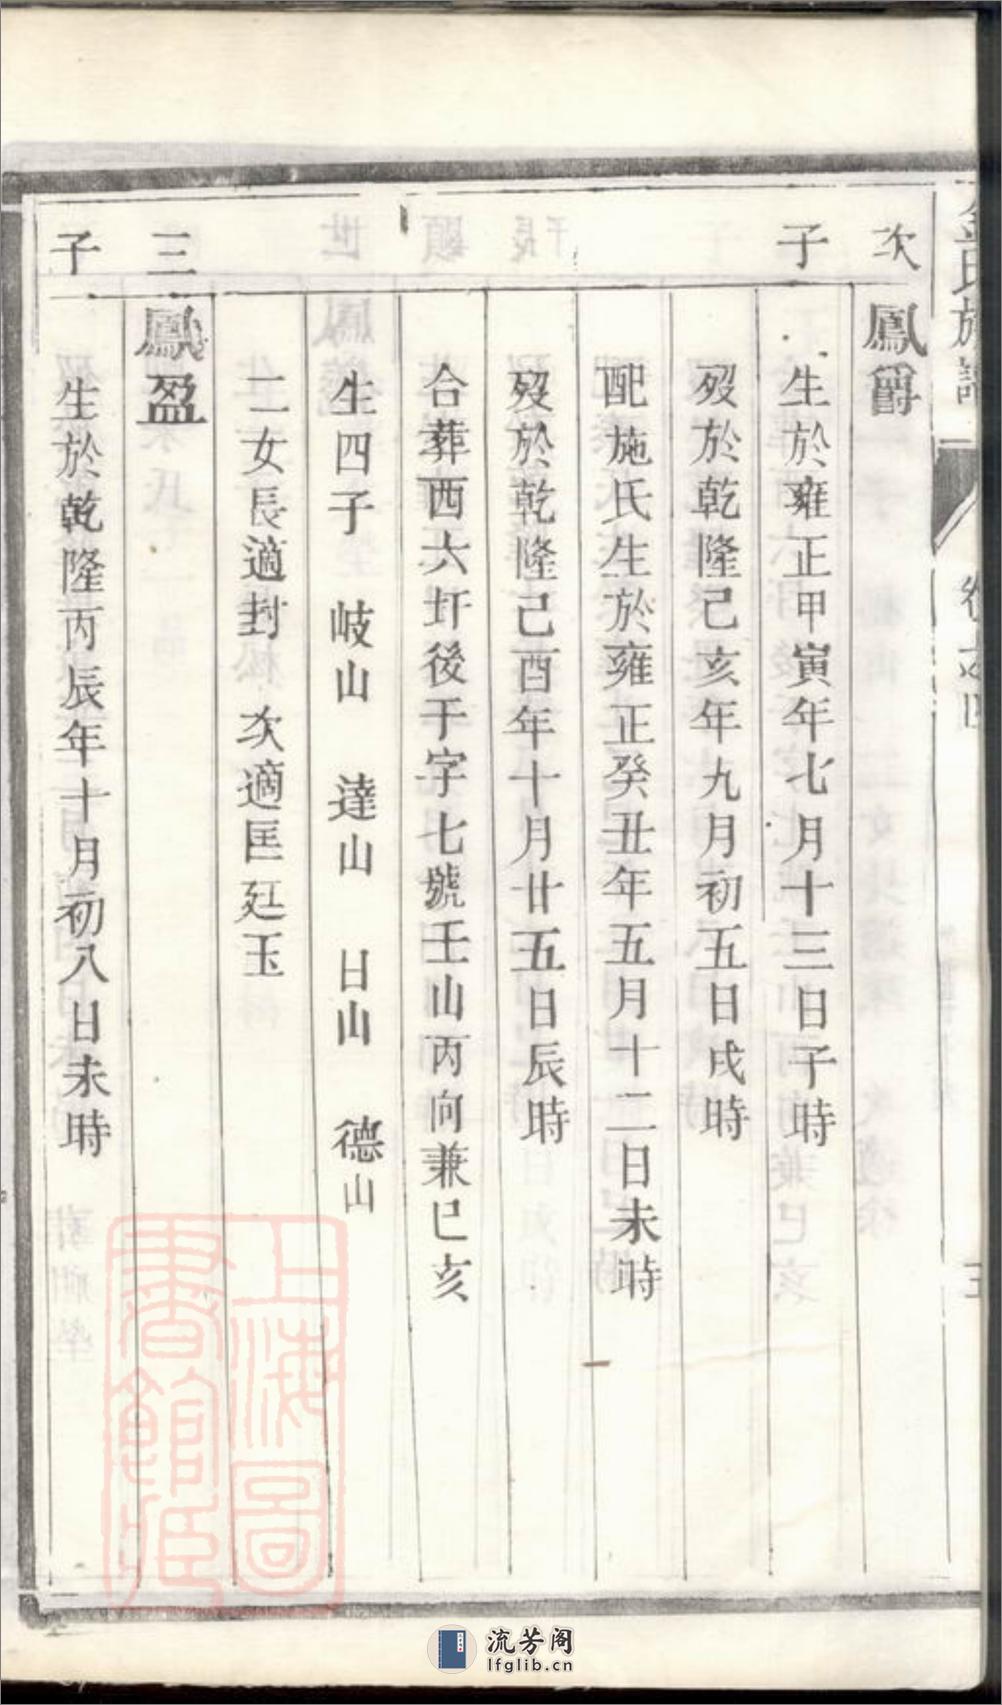 次子
鳳爵
生於雍正甲寅年七月十三日子時
歿於乾隆己亥年九月初五日戌時
配施氏生於雍正癸丑年五月十二日未時
歿於乾隆己酉年十月廿五日辰時
合葬西六圩後于字七號壬山丙向兼巳亥
生四子 岐山 達山 日山 德山
二女長適封 次適匡廷玉
三子
鳳盈
生於乾隆丙辰年十月初八日未時
上海圖書館藏
流芳阁
lfglib.cn